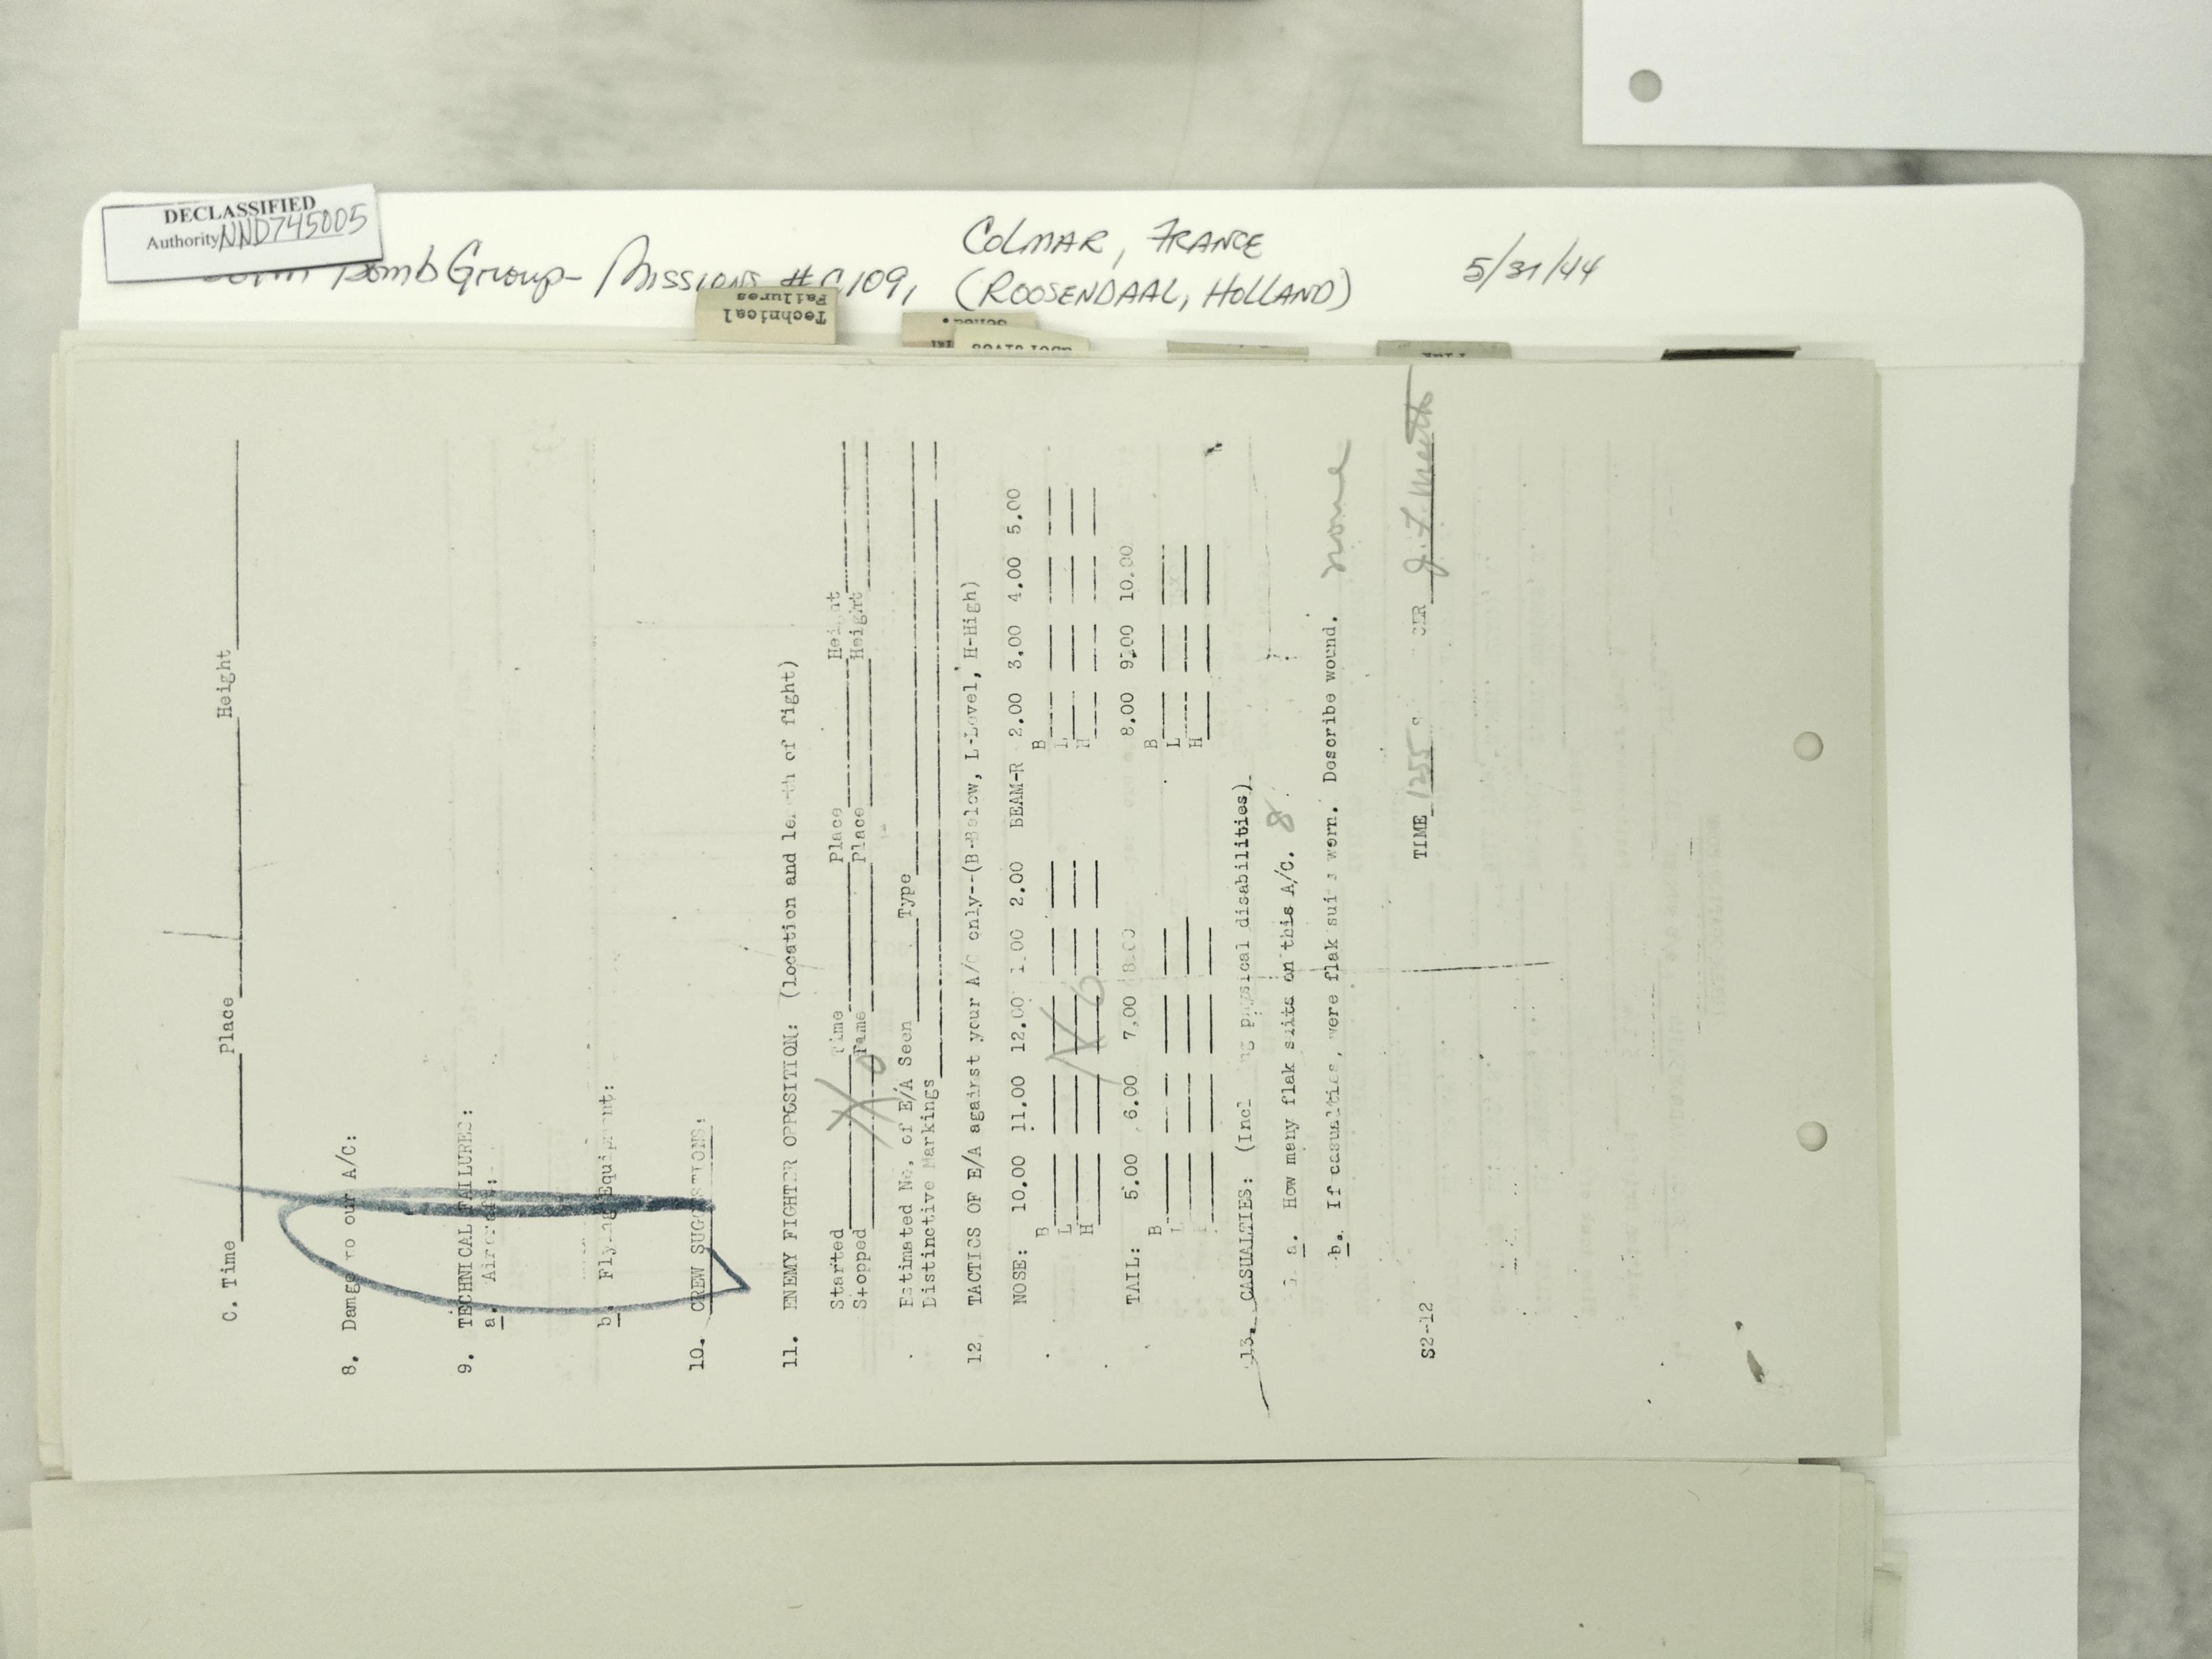 DECLASSIFIED
Authority NND745005
Bomb Group- Missions # 109, COLMAR, FRANCE
(ROOSENDAAL, HOLLAND) 5/31/44
Technical
Failures
C. Time Place Height
8. Damge to our A/C:
9. TECHNICAL FAILURES:
a. Aircraft:
b. Flying Equipment:
10. CREW SUGGESTIONS:
11. ENEMY FIGHTER OPPOSITION: (location and length of fight)
Started Time Place Height
Stopped Time Place Height
No
Estimated No. of E/A Seen Type
Distinctive Markings
12. TACTICS OF E/A against your A/C only--(B-Below, L-Level, H-High)
NOSE: 10.00 11.00 12.00 1.00 2.00 BEAM-R 2.00 3.00 4.00 5.00
B B
L L
H H
No
TAIL: 5.00 6.00 7.00 8.00 8.00 9.00 10.00
B B
L L
H
13. CASUALTIES: (Incl physical disabilities)
a. How many flak suits on this A/C. 8
b. If casualties, were flak suits worn. Describe wound. none
S2-12 TIME 1255